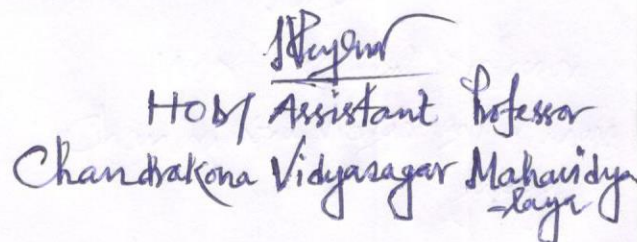 HOD/ Assistant Professor
Chandrakona Vidyasagar Mahavidya
-laya